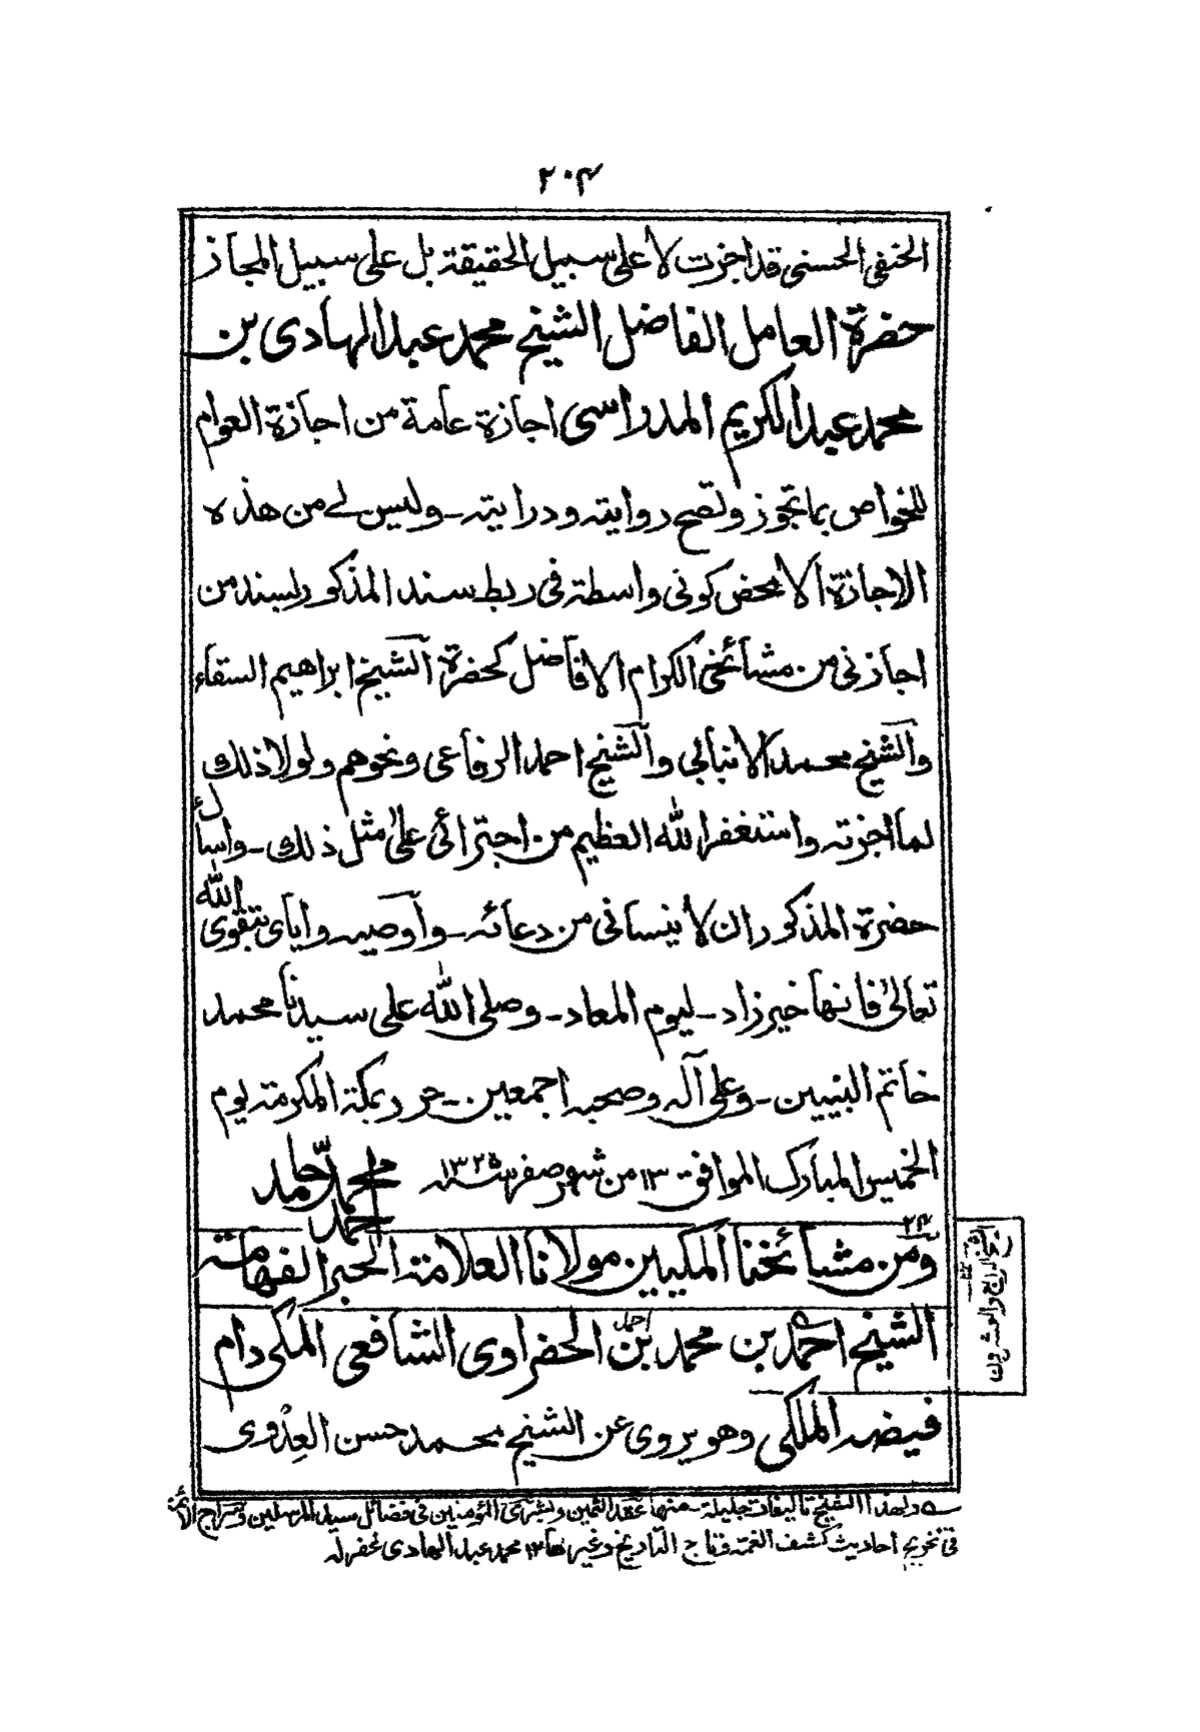 ٢٠٤
الحنفى الحسنى قد اجزت لا على سبيل الحقيقة بل على سبيل المجاز
حضرة العامل الفاضل الشيخ محمد عبد الهادى بن
محمد عبد الكريم المدراسى اجازة عامة من اجازة العوام
للخواص بما تجوز وتصح روايته ودرايته ـ وليس لے من هذه
الاجازة الا محض كونى واسطة فى ربط سند المذكور بسند من
اجازنى من مشائخى الكرام الافاضل كحضرة الشيخ ابراهيم السقاء
والشيخ محمد الانبابى والشيخ احمد الرفاعى ونحوهم ولولا ذلك
لما اجزته واستغفر الله العظيم من اجترائى على مثل ذلك ـ واسأل
حضرة المذكور ان لا ينسانى من دعائه ـ وأوصيه واياى بتقوى الله
تعالى فانها خير زاد ـ ليوم المعاد ـ وصلى الله على سيدنا محمد
خاتم النبيين ـ وعلى آله وصحبه اجمعين ـ حرر بمكة المكرمة يوم
الخميس المبارك الموافق ١٣ من شهر صفر سنة ١٣٢٥ محمد حامد
احمد
٢٤
ومن مشائخنا المكيين مولانا العلامة الحبر الفهامة
الشيخ احمد بن محمد بن احمد الحضراوى الشافعى المكى دام
فيضه الملكى وهو يروى عن الشيخ محمد حسن العِدْوى
الشيخ الرابع والعشرون
ے ولهذا الشيخ تاليفات جليلة ـ منها عقد الثمين وبشرى المؤمنين فى فضائل سيد المرسلين وسراج الائمة
فى تخريج احاديث كشف الغمة وتاج التاريخ وغيرها ١٢ محمد عبد الهادى غفر له